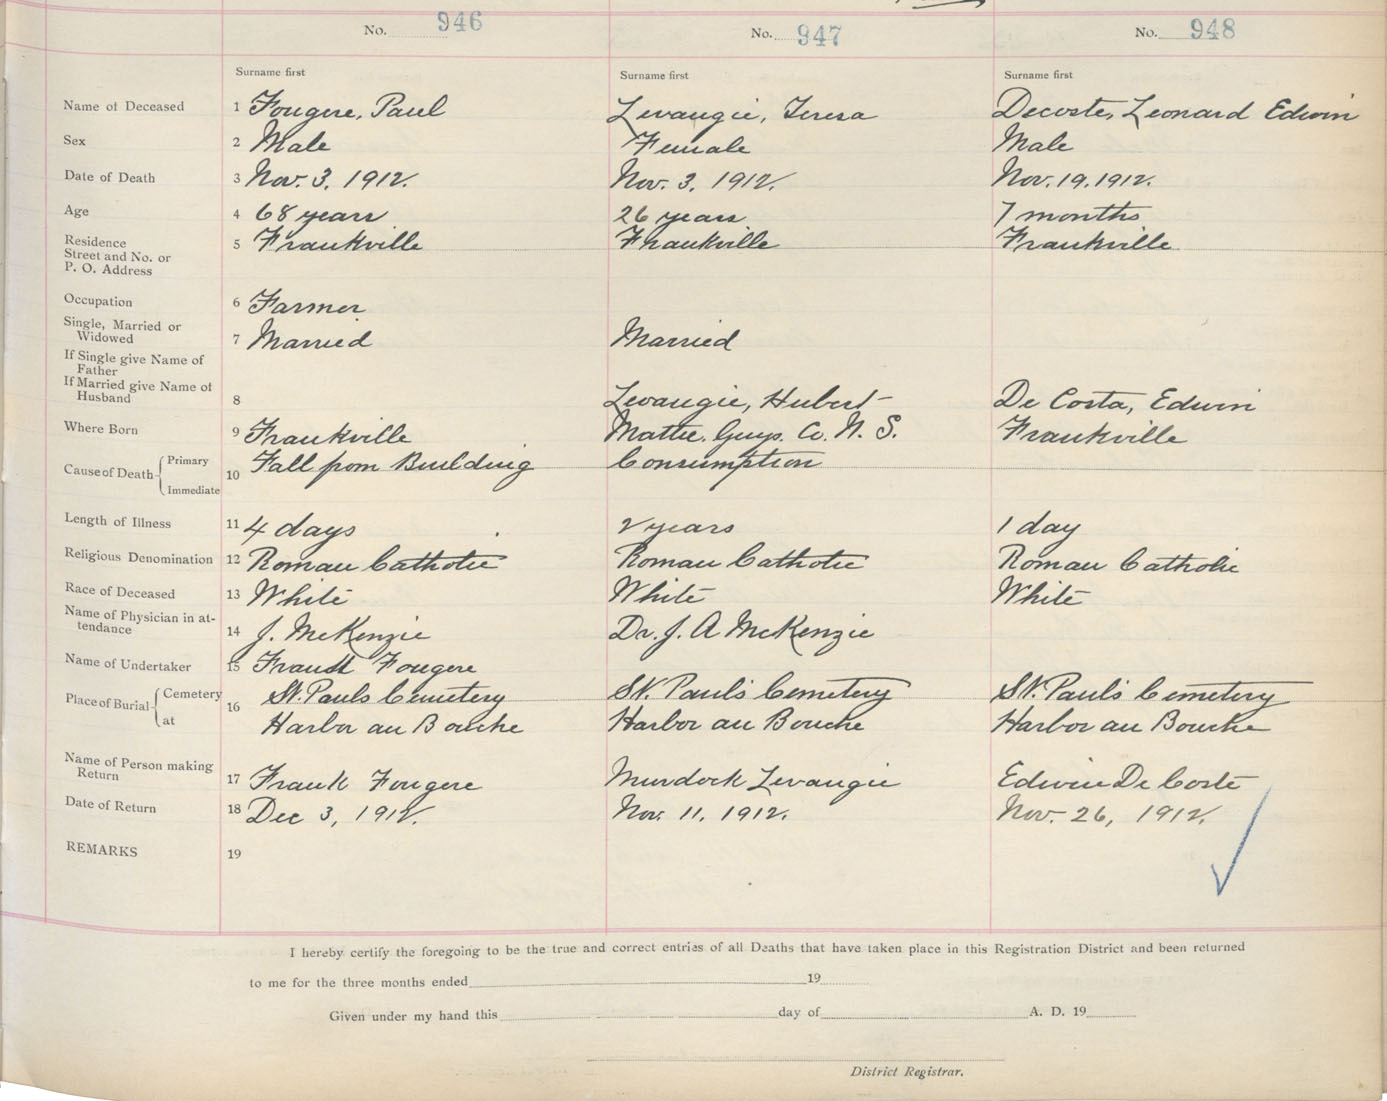 No. 946 No. 947 No. 948
Surname first Surname first Surname first
Name of Deceased 1 Fougere, Paul Levangie, Teresa Decoste, Leonard Edwin
Sex 2 Male Female Male
Date of Death 3 Nov. 3. 1912. Nov. 3. 1912. Nov. 19. 1912.
Age 4 68 years 26 years 7 months
Residence
Street and No. or 5 Frankville Frankville Frankville
P. O. Address
Occupation 6 Farmer
Single, Married or
Widowed 7 Married Married
If Single give Name of
Father
If Married give Name of
Husband 8 Levangie, Hubert De Costa, Edwin
Where Born 9 Frankville Mattie. Guys. Co. N. S. Frankville
Cause of Death Primary 10 Fall from Building Consumption
Immediate
Length of Illness 11 4 days 2 years 1 day
Religious Denomination 12 Roman Catholic Roman Catholic Roman Catholic
Race of Deceased 13 White White White
Name of Physician in at-
tendance 14 J. McKenzie Dr. J. A McKenzie
Name of Undertaker 15 Fougere
Place of Burial Cemetery 16 St. Pauls Cemetery St. Paul's Cemetery St. Paul's Cemetery
at Harbor au Bouche Harbor au Bouche Harbor au Bouche
Name of Person making
Return 17 Frank Fougere Murdock Levangie Edwin De Coste
Date of Return 18 Dec 3, 1912. Nov. 11. 1912. Nov. 26, 1912.
REMARKS 19
I hereby certify the foregoing to be the true and correct entries of all Deaths that have taken place in this Registration District and been returned
to me for the three months ended 19
Given under my hand this day of A. D. 19
District Registrar.